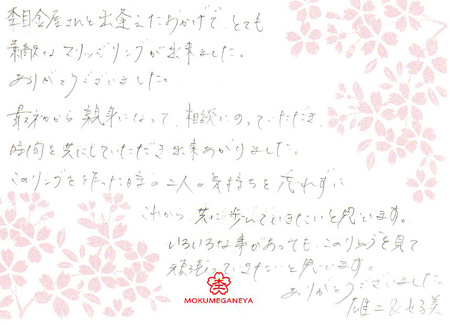 杢目金屋さんと出逢えたおかげで、とても
素敵なマリッジリングが出来ました。
ありがとうございました。
最初から親身になって、相談にのっていただき
時間を共にしていただき出来あがりました。
このリングを作った時の二人の気持ちを忘れずに
これから共に歩んでいきたいと思います。
いろいろな事があっても、このリングを見て
頑張っていきたいと思います。
ありがとうございました。
雄二&
杢
MOKUMEGANEYA